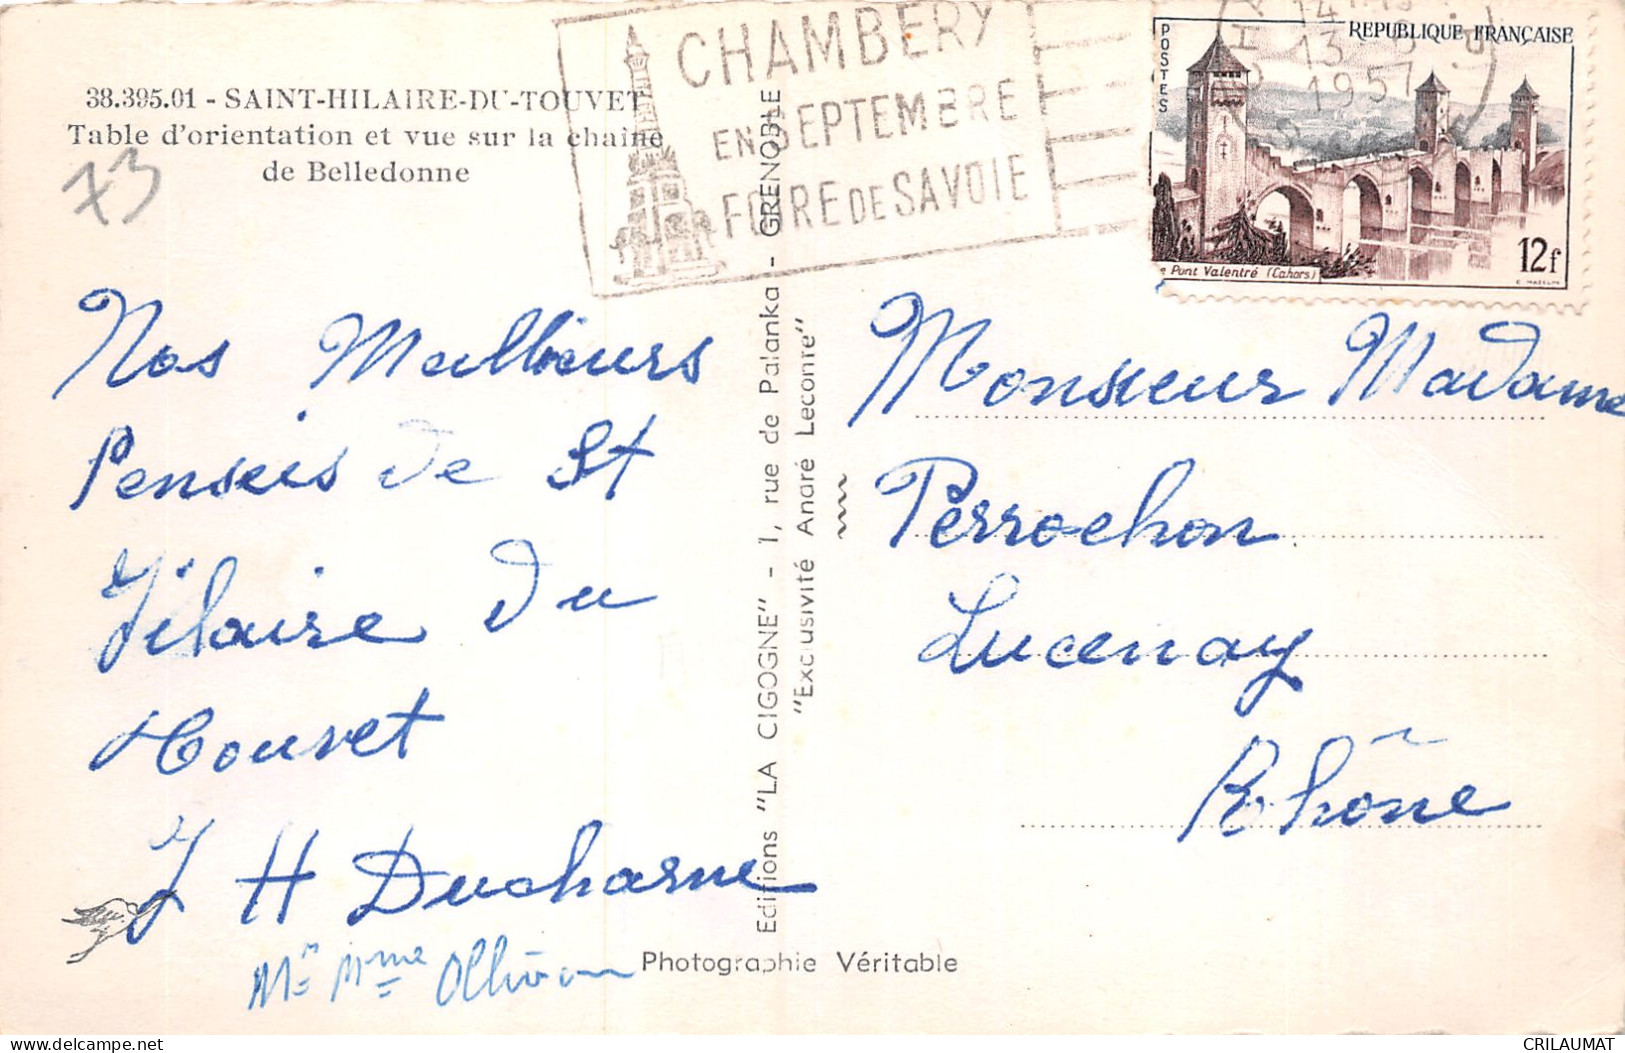 38.395.01 - SAINT-HILAIRE-DU-TOUVET
Table d'orientation et vue sur la chaîne
de Belledonne
73
CHAMBERY
EN SEPTEMBRE
FOIRE DE SAVOIE
13
1957
POSTES
REPUBLIQUE FRANÇAISE
12f
e Pont Valentré (Cahors)
Nos Meilleurs
Pensées de St
Hilaire du
Touvet
J H Ducharne
Mr Mme
Editions "LA CIGOGNE" - 1, rue de Palanka - GRENOBLE
"Exclusivité André Leconte"
Monsieur Madame
Perrochon
Lucenay
Rhône
Photographie Véritable
CRILAUMAT